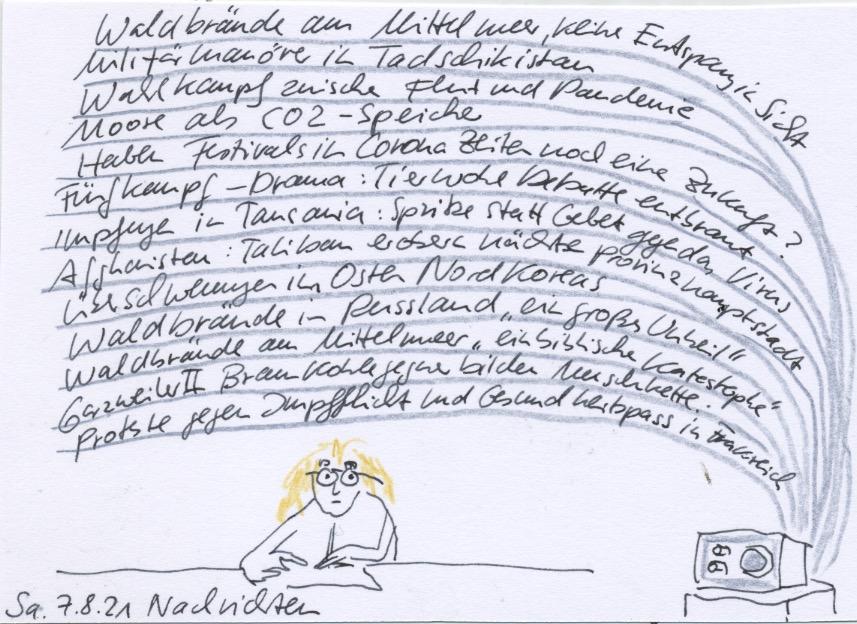 Waldbrände am Mittelmeer, keine Entspannung in Sicht
Militärmanöver in Tadschikistan
Wahlkampf zwische Flut und Pandemie
Moore als CO2-Speicher
Haben Festivals in Corona Zeiten noch eine Zukunft?
Fünfkampf-Drama: Tierwohl Debatte entbrannt
Impfungen in Tansania: Spritze statt Gebet gegen das Virus
Afghanistan: Taliban erobern nächste Provinzhauptstadt
Überschwemmungen im Osten Nordkoreas
Waldbrände in Russland „ein großes Unheil"
Waldbrände am Mittelmeer „ein biblische Katastrophe"
Garzweiler II Braunkohlegegner bilden Menschkette.
Proteste gegen Impfpflicht und Gesundheitspass in Frankreich
Sa. 7.8.21 Nachrichten